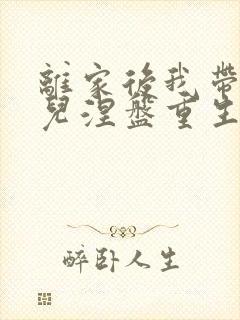 離家後我帶
兒涅盤重生
醉卧人生